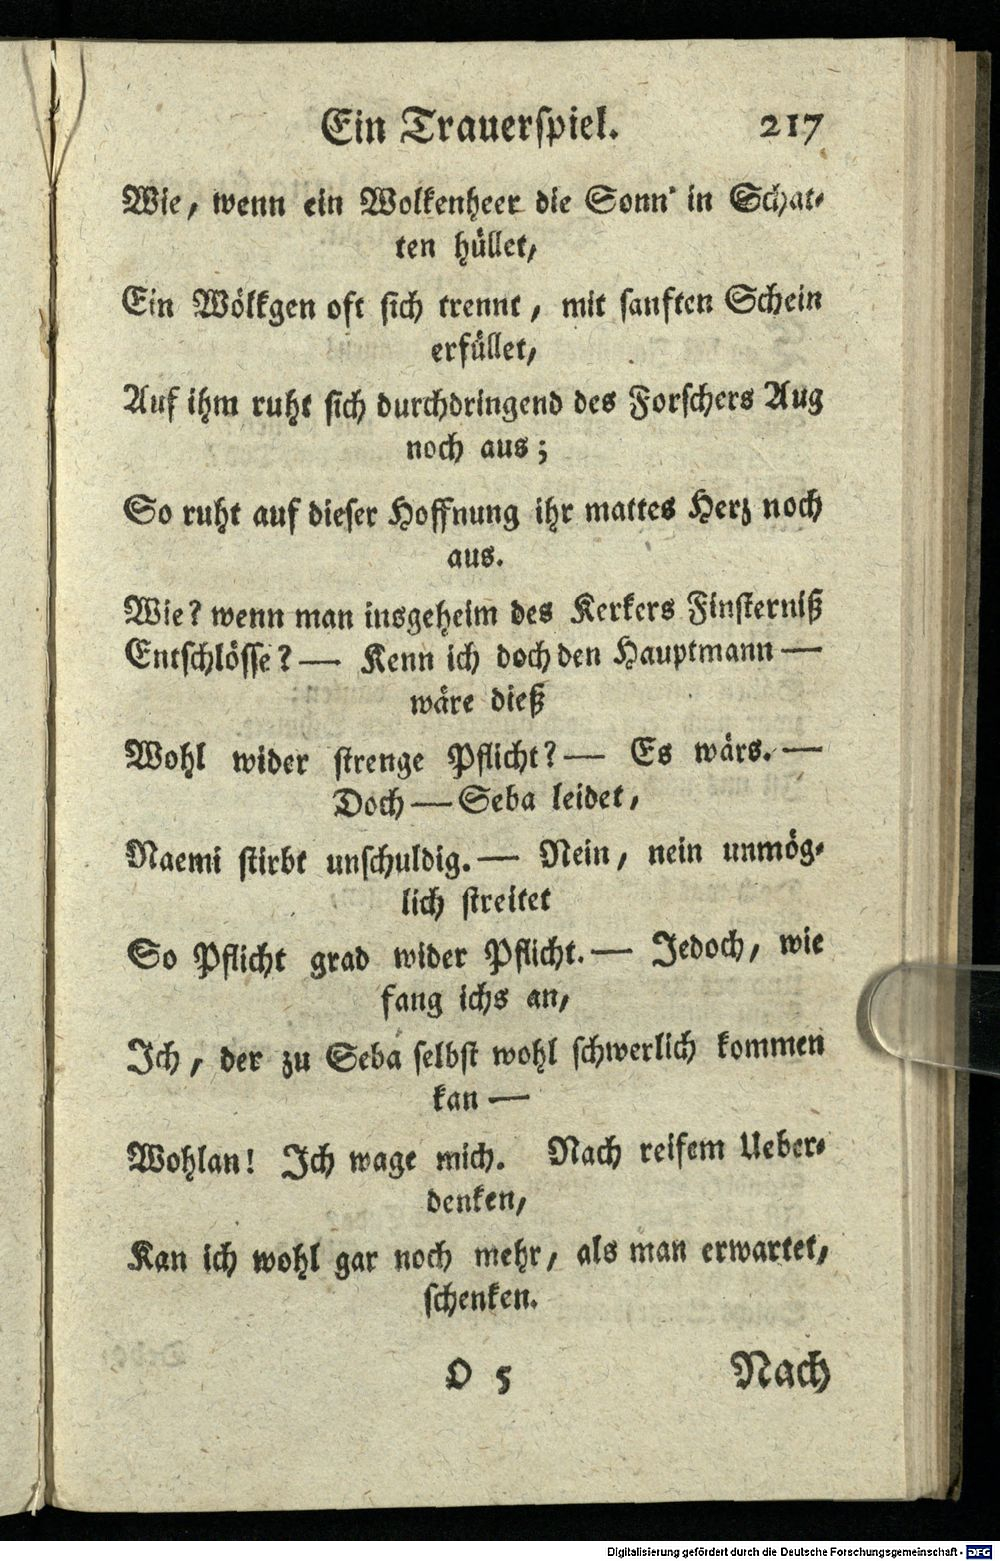 Ein Trauerspiel. 217
Wie, wenn ein Wolkenheer die Sonn' in Schat-
ten hüllet,
Ein Wölkgen oft sich trennt, mit sanften Schein
erfüllet,
Auf ihm ruht sich durchdringend des Forschers Aug
noch aus;
So ruht auf dieser Hoffnung ihr mattes Herz noch
aus.
Wie? wenn man insgeheim des Kerkers Finsterniß
Entschlösse? — Kenn ich doch den Hauptmann —
wäre dieß
Wohl wider strenge Pflicht? — Es wärs. —
Doch — Seba leidet,
Naemi stirbt unschuldig. — Nein, nein unmög-
lich streitet
So Pflicht grad wider Pflicht. — Jedoch, wie
fang ichs an,
Ich, der zu Seba selbst wohl schwerlich kommen
kan —
Wohlan! Ich wage mich. Nach reifem Ueber-
denken,
Kan ich wohl gar noch mehr, als man erwartet,
schenken.
O 5 Nach
Digitalisierung gefördert durch die Deutsche Forschungsgemeinschaft - DFG